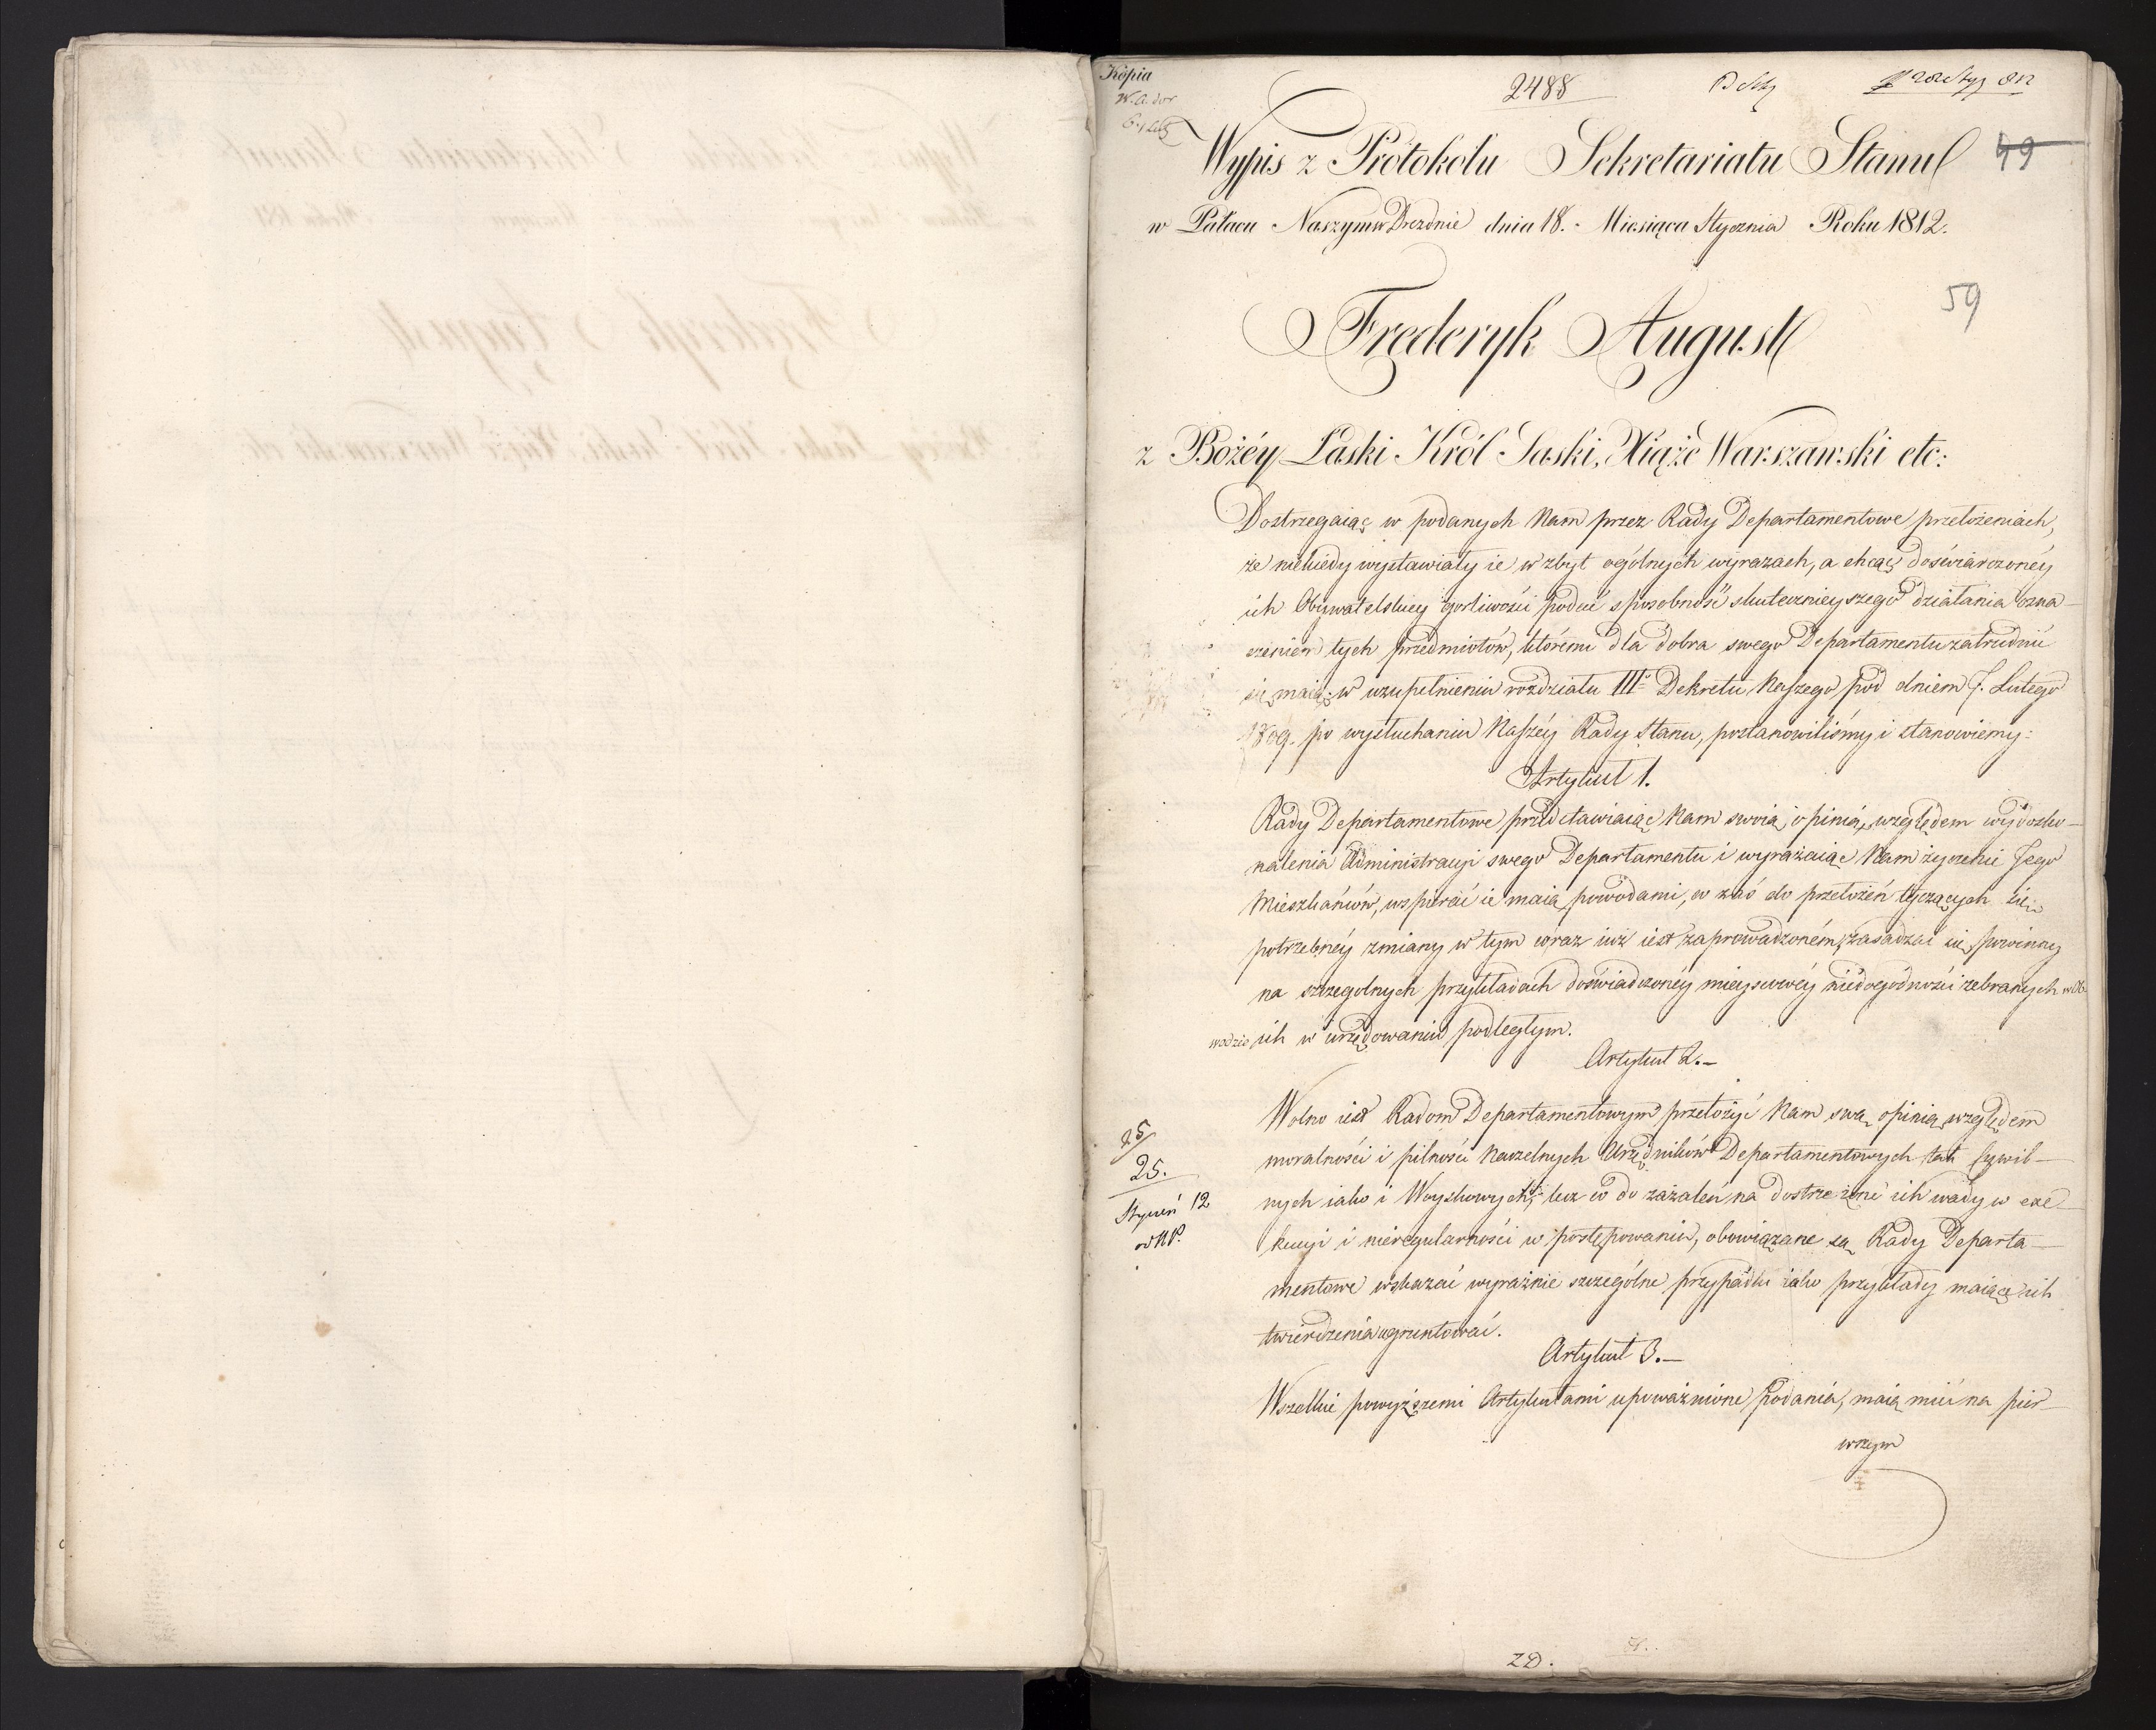 Kopia
2488
49
Wypis z Protokołu Sekretariatu Stanu
w Pałacu Naszym w Dreznie dnia 18. Miesiąca Stycznia Roku 1812.
59
Frederyk August
z Bożéy Łaski Król Saski, Xiążę Warszawski etc:
Dostrzegaiąc w podanych Nam przez Rady Departamentowe przełożeniach,
że niekiedy wystawiały ie w zbyt ogólnych wyrazach, a chcąc doświadczonéy
ich Obywatelskiey gorliwości podać sposobność skutecznieyszego działania ozna-
czeniem tych przedmiotów, któremi dla dobra swego Departamentu zatrudnić
się maią; w uzupełnieniu rozdziału III° Dekretu Naszego pod dniem 7. Lutego
1809. po wysłuchaniu Naszéy Rady Stanu, postanowiliśmy i stanowiemy:
Artykuł 1.
Rady Departamentowe przedstawiaiąc Nam swoią opinią względem wydosko-
nalenia Administracyi swego Departamentu i wyrażaiąc Nam życzenie Jego
Mieszkańców, wspierać ie maią powodami, co zaś do przełożeń tyczących się
potrzebnéy zmiany w tym co raz iuż iest zaprowadzoném, zasadzać się powinny
na szczegolnych przykładach doświadczonéy mieyscowéy niedogodności zebranych w Ob-
wodzie ich w urzędowaniu podległym.
Artykuł 2.-
Wolno iest Radom Departamentowym przełożyć Nam swą opinią względem
moralności i pilności Naczelnych Urzędników Departamentowych tak Cywil-
nych iako i Woyskowych, lecz co do zażaleń na dostrzeżone ich wady w exe-
kucyi i nieregularności w postępowaniu, obowiązane są Rady Departa-
mentowe wskazać wyraźnie szczególne przypadki iako przykłady maiące ich
twierdzenia ugruntować.
25.
Styczeń 12
Artykuł 3.-
Wszelkie powyższemi Artykułami upoważnione podania, maią mieć na pier-
wszym